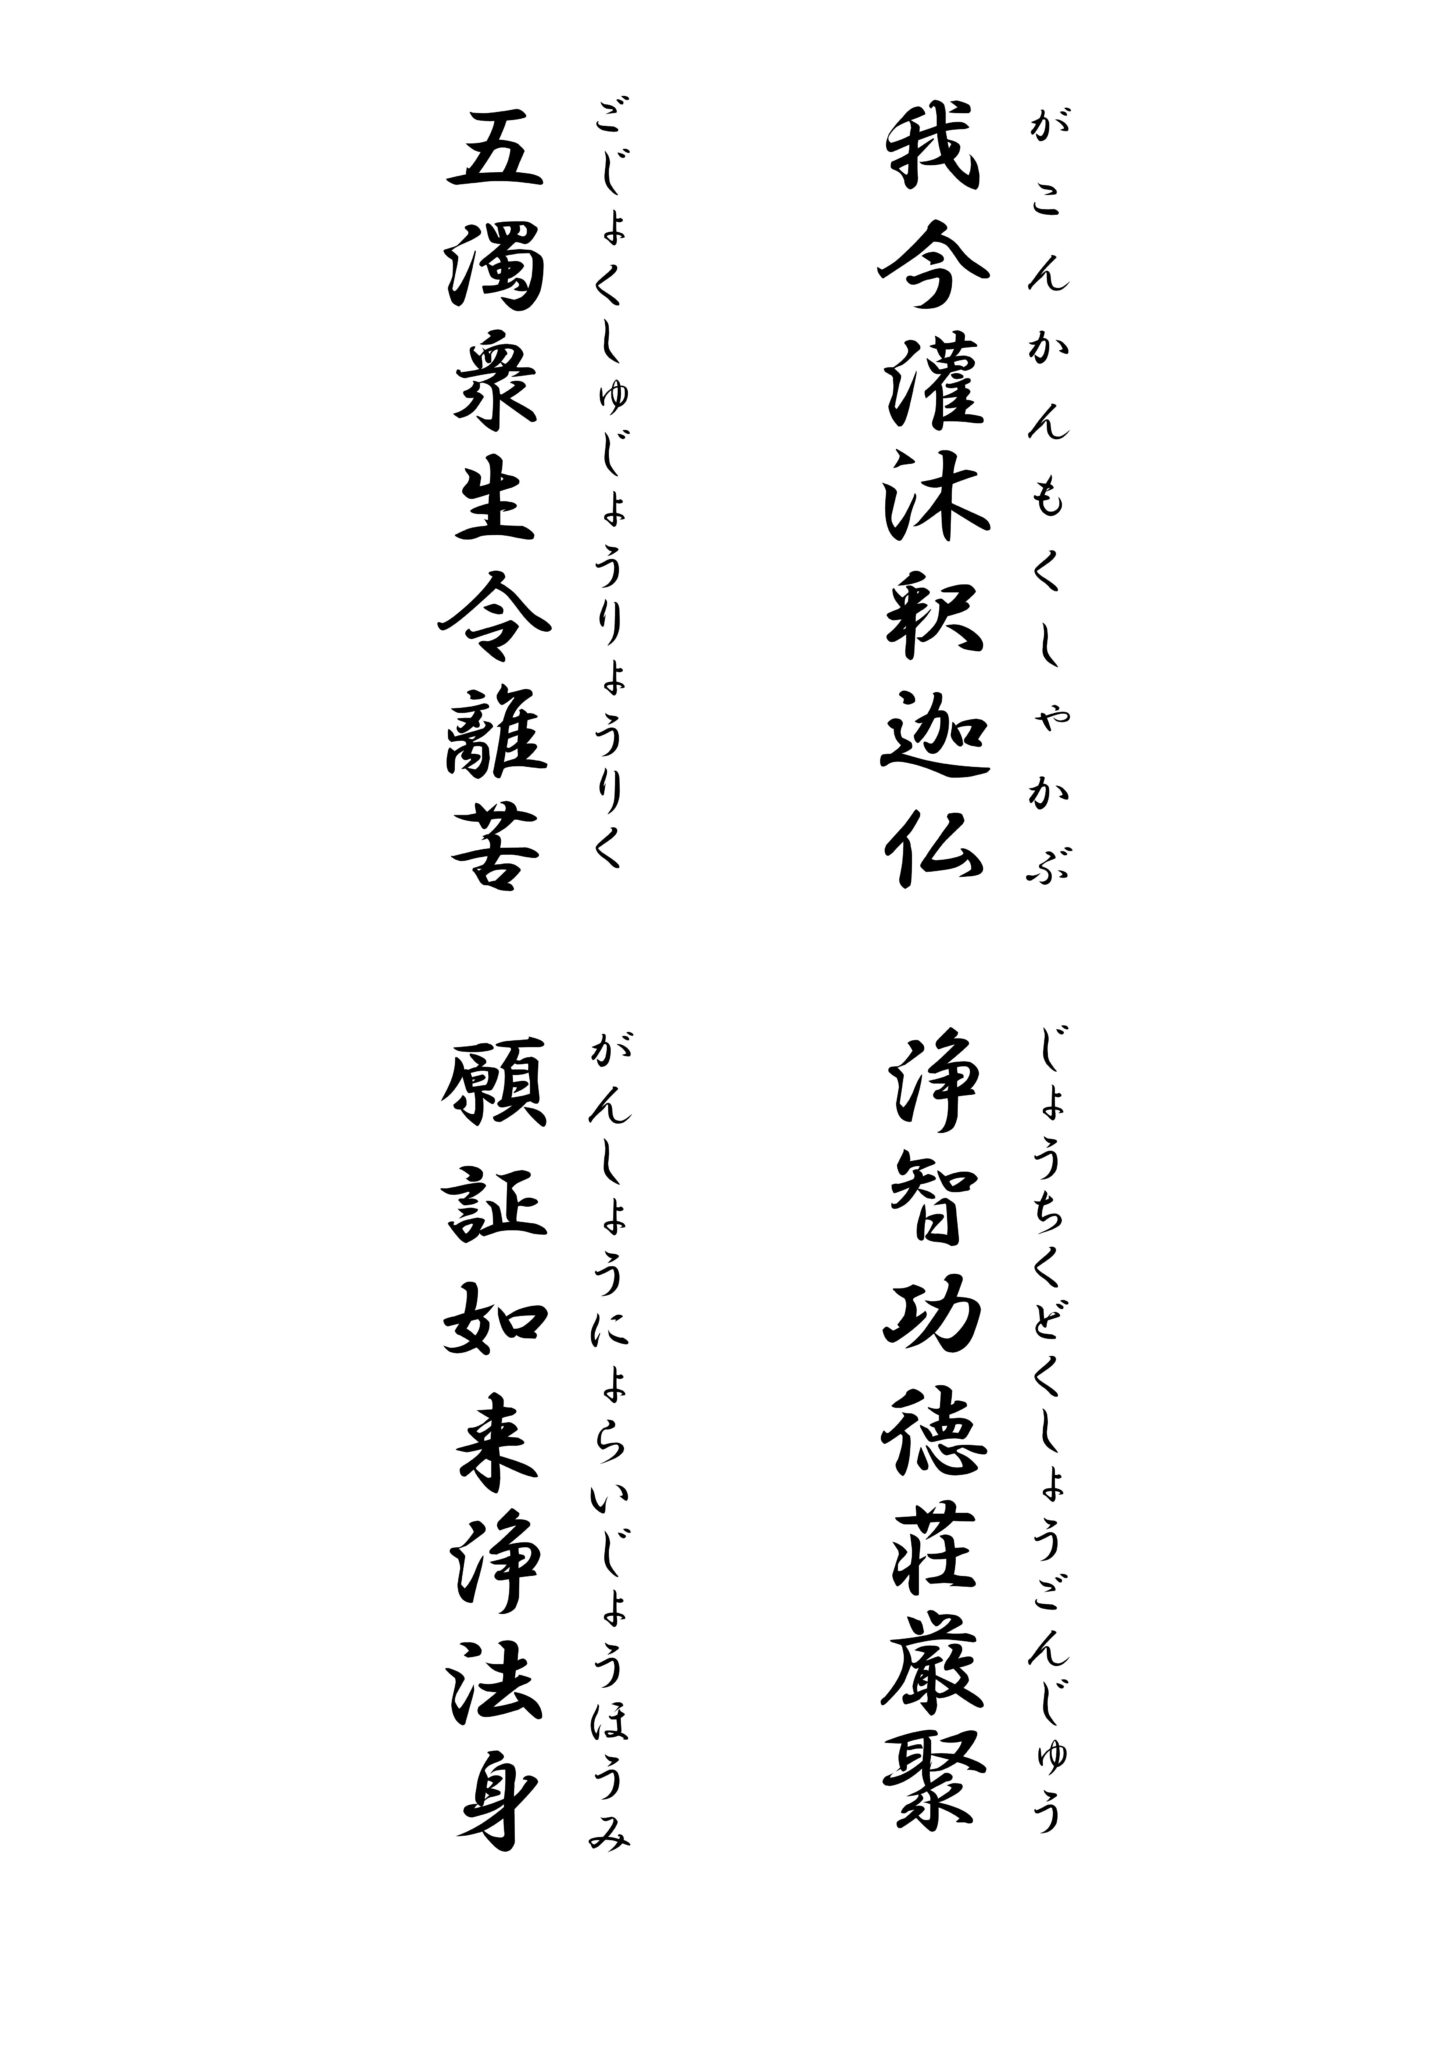 がこんかんもくしゃかぶ
我今灌沐釈迦仏
じょうちくどくしょうごんじゅう
浄智功徳荘厳聚
ごじょくしゅじょうりょうりく
五濁衆生令離苦
がんしょうにょらいじょうほうみ
願証如来浄法身